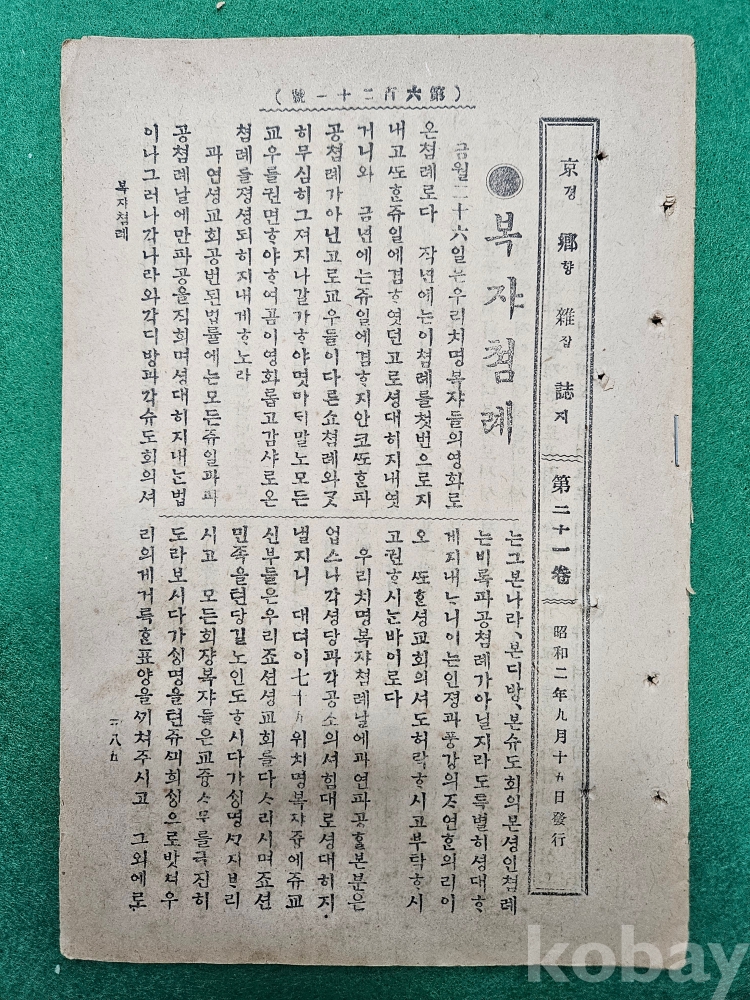 (第六百二十一號)
京경 鄕향 雜잡 誌지 第二十一卷 昭和二年九月十五日發行
복쟈쳠례
금월二十六일은우리치명복쟈들의영화로
온쳠례로다 작년에는이쳠례를첫번으로지
내고ᄯᅩᄒᆞᆫ쥬일에겸ᄒᆞ엿던고로셩대히지내엿
거니와 금년에는쥬일에겸ᄒᆞ지안코ᄯᅩᄒᆞᆫ파
공쳠례가아닌고로교우들이다른쇼쳠례와ᄀᆞᆺ
히무심히그져지나갈가ᄒᆞ야몃마ᄃᆡ말노모든
교우를권면ᄒᆞ야ᄒᆞ여곰이영화롭고감샤로온
쳠례를졍셩되히지내게ᄒᆞ노라
과연셩교회공번된법률에는모든쥬일과파
공쳠례날에만파공을직희며셩대히지내는법
이나그러나각나라와각디방과각슈도회의셔
복쟈쳠례
는그본나라、본디방、본슈도회의본셩인쳠례
는비록파공쳠례가아닐지라도특별히셩대ᄒᆞ
게지내ᄂᆞ니이는인졍과풍강의ᄌᆞ연ᄒᆞᆫ의리이
오 ᄯᅩᄒᆞᆫ셩교회의셔도허락ᄒᆞ시고부탁ᄒᆞ시
고권ᄒᆞ시는바이로다
우리치명복쟈쳠례날에과연파공ᄒᆞᆯ본분은
업스나각셩당과각공소의셔힘대로셩대히지
낼지니 대뎌이七十九위치명복쟈즁에쥬교
신부들은우리죠션셩교회를다ᄉᆞ리시며죠션
민족을텬당길노인도ᄒᆞ시다가싱명ᄭᆞ지ᄇᆞ리
시고 모든회쟝복쟈들은교즁ᄉᆞ무를극진히
도라보시다가싱명을텬쥬ᄭᅴ희싱으로밧쳐우
리의게거륵ᄒᆞᆫ표양을ᄭᅵ쳐주시고 그외에로
三八五
kobay